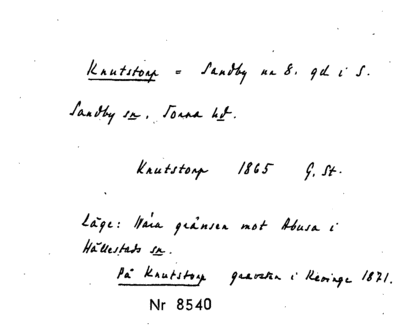 Knutstorp = Sandby nr 8. gd i S.
Sandby sn, Torna hd.
Knutstorp 1865 G. St.
Läge: Nära gränsen mot Abusa i
Hällestads sn.
På Knutstorp gravsten i Revinge 1871.
Nr 8540